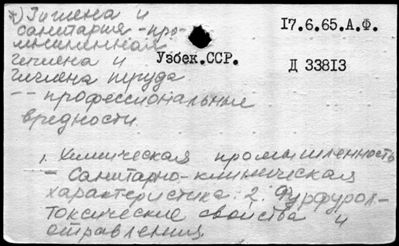 Гигиена и
санитария - про-
мышленная
гигиена и
гигиена труда
-- профессиональные
вредности
17.6.65.А.Ф.
Узбек.ССР.
Д 33813
1. Химическая промышленность
- Санитарно-клиническая
характеристика. 2. Фурфурол-
токсические свойства и
отравления